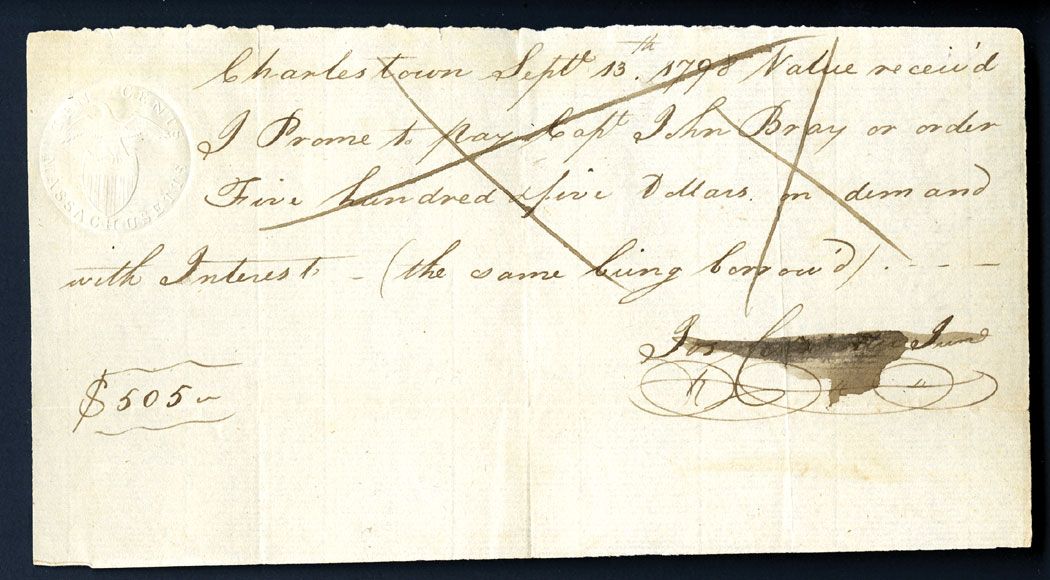 Charlestown Septr. 13.th 1798 Value receiv'd
I Prome to pay Capt John Bray or order
Five hundred & five Dollars. on demand
with Interest - (the same being borrow'd). - - -
Jos Junr
$505
CENTS
MASSACHUSETTS